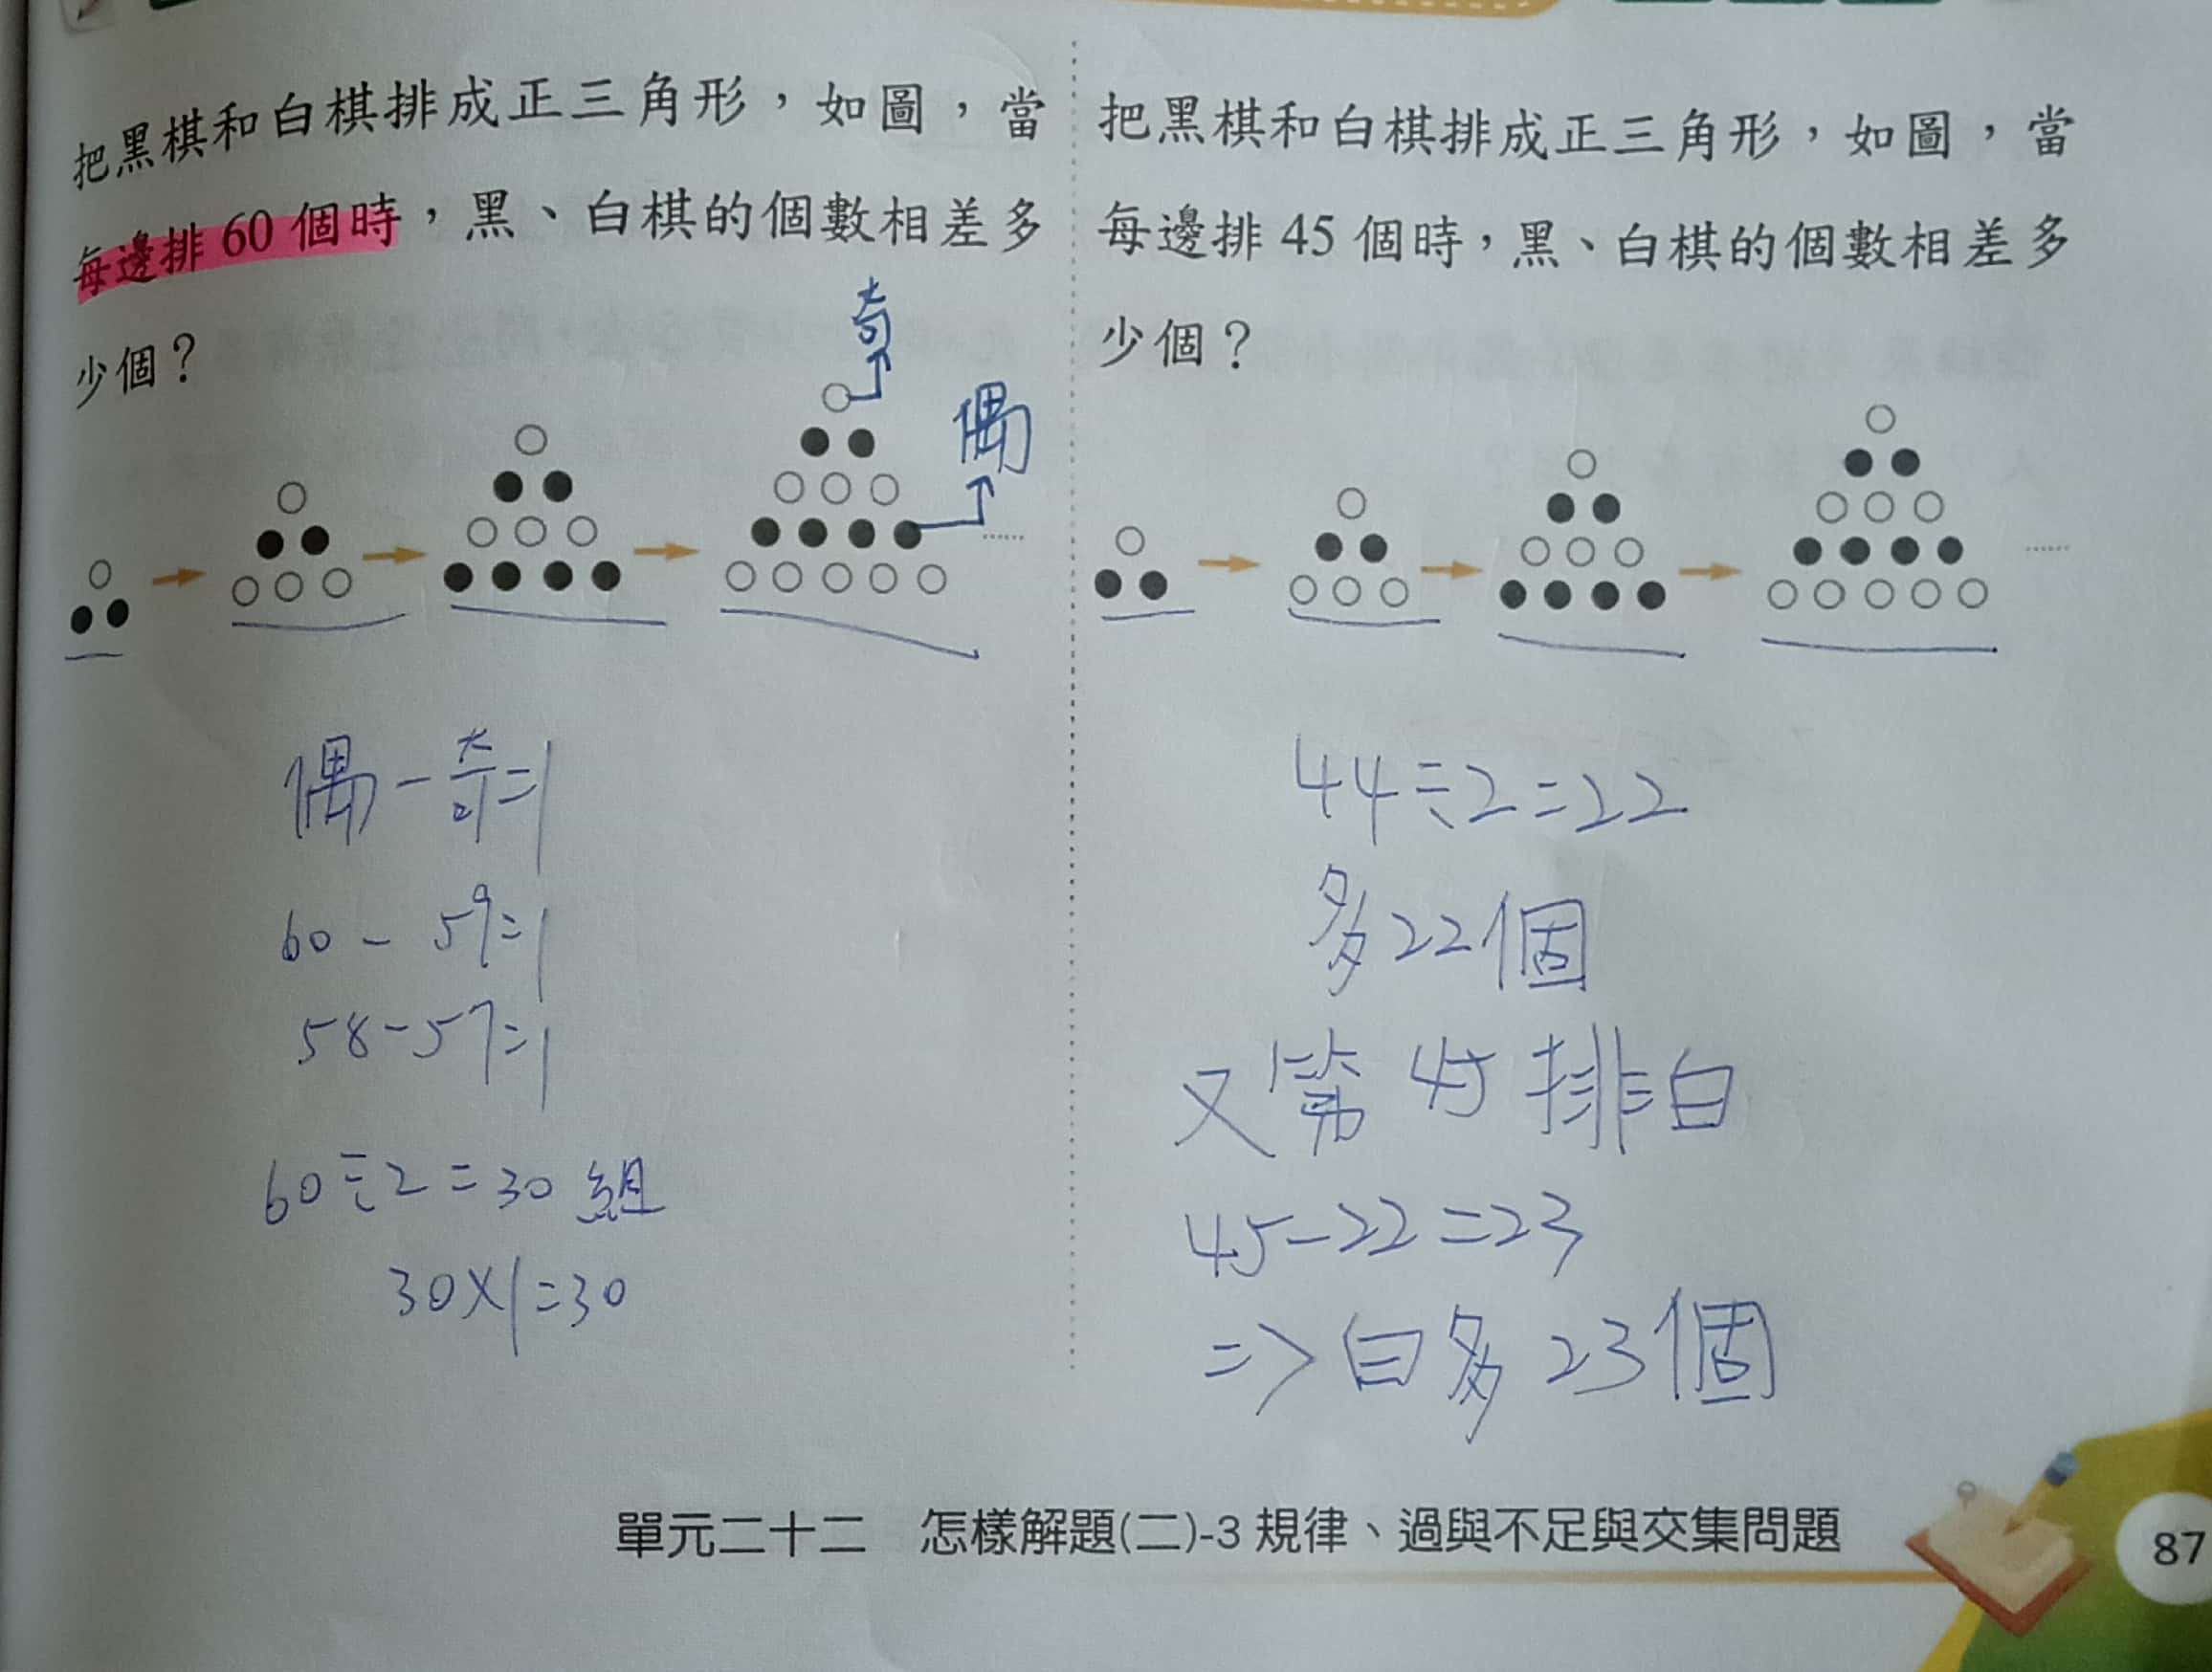 把黑棋和白棋排成正三角形，如圖，當
每邊排 60 個時，黑、白棋的個數相差多
少個？
奇
偶
……
偶－奇=1
60－59=1
58－57=1
60÷2=30 組
30×1=30
把黑棋和白棋排成正三角形，如圖，當
每邊排 45 個時，黑、白棋的個數相差多
少個？
……
44÷2=22
多22個
又第 45 排白
45－22=23
=>白多 23個
單元二十二　怎樣解題(二)-3 規律、過與不足與交集問題
87